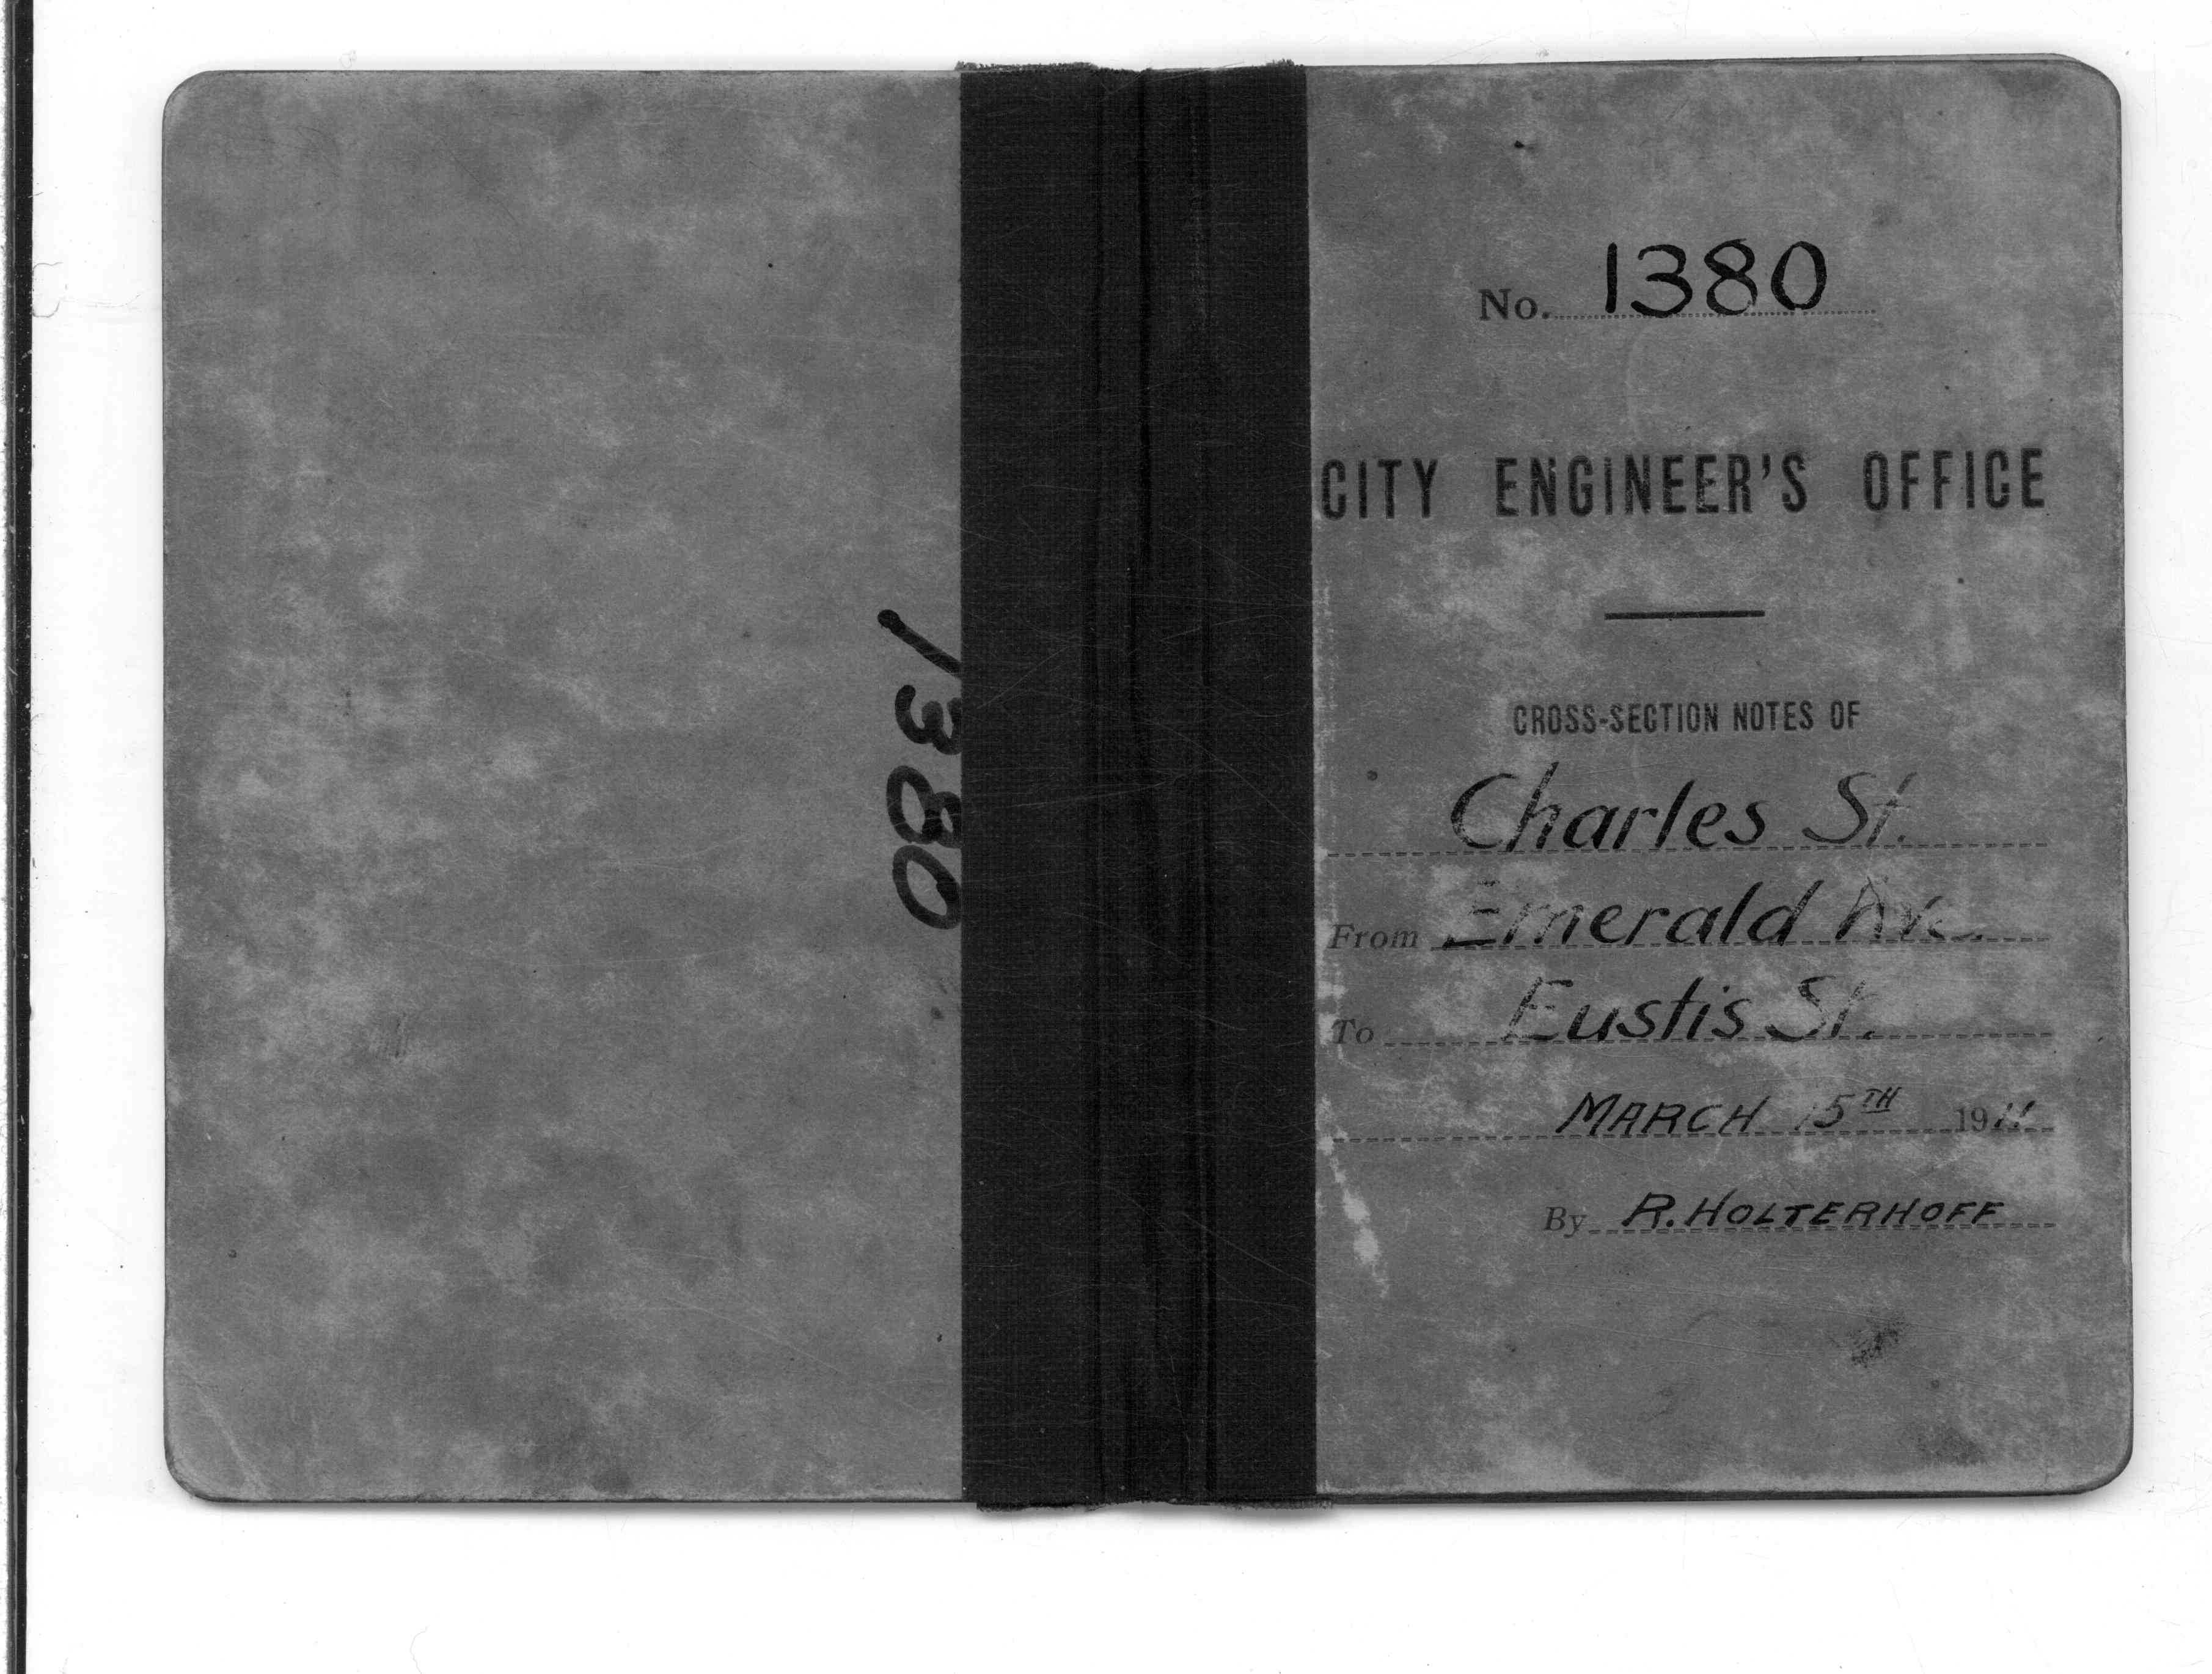 1380
No. 1380
CITY ENGINEER'S OFFICE
CROSS-SECTION NOTES OF
Charles St.
From Emerald Ave.
To Eustis St.
MARCH 15TH 1911
By R. HOLTERHOFF